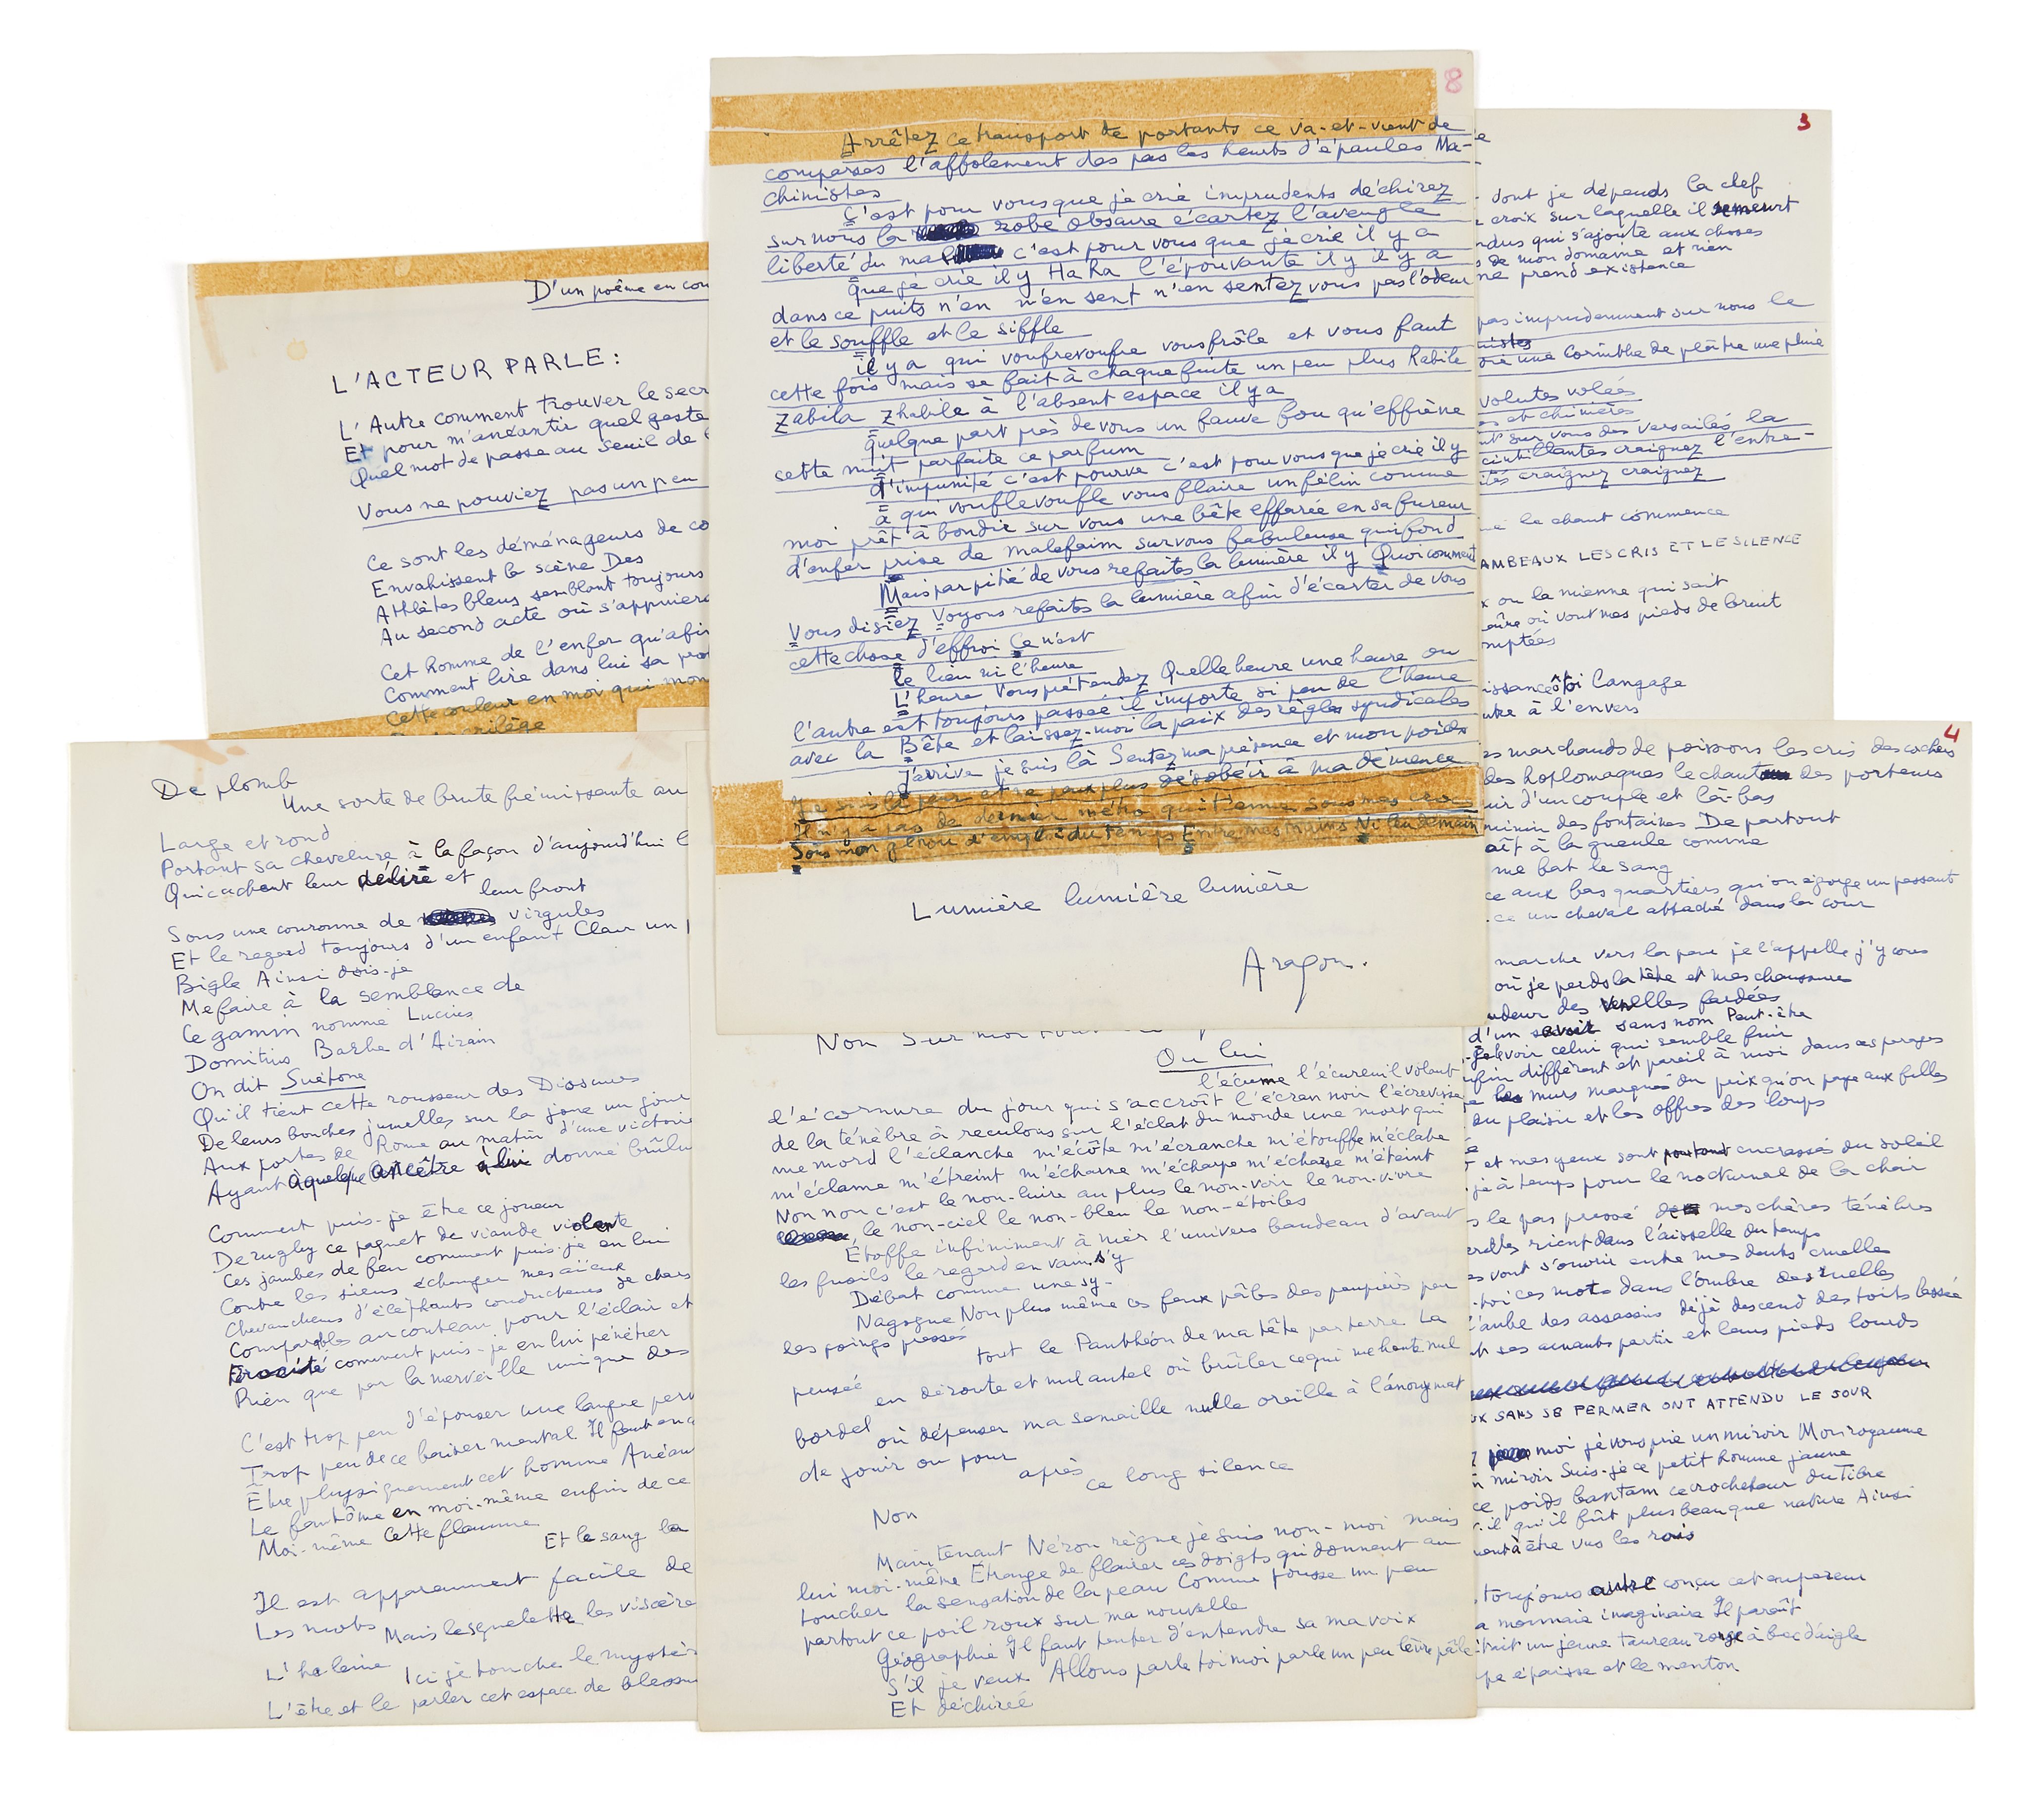 D'un poème en cou
L'ACTEUR PARLE:
L'Autre comment trouver le secr
Et pour m'anéantir quel geste
Quel mot de passe au seuil de l
Vous ne pouviez pas un peu
Ce sont les déménageurs de co
Envahissent la scène Des
Athlètes bleus semblant toujours
Au second acte où s'appuiera
Cet homme de l'enfer qu'afin
Comment lire dans lui sa pro
Cette couleur en moi qui mon
De plomb
Une sorte de brute frémissante au
Large et rond
Portant sa chevelure à la façon d'aujourd'hui l
Qui cachent leur délire et
leur front
Sous une couronne de virgules
Et le regard toujours d'un enfant Clair un p
Bigle Ainsi dois-je
Me faire à la semblance de
Ce gamin nommé Lucius
Domitius Barbe d'Airain
On dit Suétone
Qu'il tient cette rousseur des Dioscures
De leurs bouches jumelles sur la joue un jour
Aux portes de Rome au matin d'une victoire
Ayant à quelque ancêtre à lui donné brûlu
Comment puis-je être ce joueur
De rugby ce paquet de viande violente
Ces jambes de feu comment puis-je en lui
Contre les siens échanger mes aïeux
Chevaucheurs d'éléphants conducteurs de chars
Comparables au couteau pour l'éclair et
Férocité comment puis-je en lui pénétrer
Rien que par la merveille unique des
C'est trop peu d'épouser une langue per
Trop peu de ce baiser mental Il faut en a
Être physiquement cet homme Anéan
Le fantôme en moi-même enfin de ce
Moi-même Cette flamme
Et le sang la
Il est apparemment facile de
Les mots Mais le squelette les viscère
L'haleine Ici je touche le mystèr
L'être et le parler cet espace de blessu
8
Arrêtez ce transport de portants ce va-et-vient de
comparses l'affolement des pas les heurts d'épaules Ma-
chinistes
C'est pour vous que je crie imprudents déchirez
sur nous la robe obscure écartez l'aveugle
liberté du mal c'est pour vous que je crie il y a
Que je crie il y Ha ha l'épouvante il y il y a
dans ce puits n'en n'en sent n'en sentez vous pas l'odeur
et le souffle et le siffle
il y a qui voufrevoufre vous frôle et vous faut
cette fois mais se fait à chaque fuite un peu plus habile
zabila zhabile à l'absent espace il y a
Quelque part près de vous un fauve fou qu'effrène
cette nuit parfaite ce parfum
d'impunité c'est pourve c'est pour vous que je crie il y
a qui voufflevoufle vous flaire un félin comme
moi prêt à bondir sur vous une bête effarée en sa fureur
d'enfer prise de malefaim sur vous fabuleuse qui fond
Mais par pitié de vous refaites la lumière il y Quoi comment
Vous disiez Voyons refaites la lumière afin d'écarter de vous
cette chose d'effroi Ce n'est
Le lieu ni l'heure
L'heure Vous prétendez Quelle heure une heure ou
l'autre est toujours passée il importe si peu de l'heure
avec la Bête et laissez-moi la paix des règles syndicales
J'arrive je suis là Sentez ma présence et mon poids
Je suis là pour être peux plus désobéir à ma démence
Il n'y a pas de dernier métro qui tienne sous mes
Sous mon genou d'emploi du temps Entre mes mains Ni lendemain
Lumière lumière lumière
Aragon.
Non Sur moi
Ou lui
l'écume l'écureuil volant
l'écornure du jour qui s'accroît l'écran noir l'écrevisse
de la ténèbre à reculons sur l'éclat du monde une mort qui
me mord l'éclanche m'écôte m'écranche m'étouffe m'éclate
m'éclame m'étreint m'écharne m'écharpe m'écharse m'éteint
Non non c'est le non-luire au plus le non-voir le non-vivre
le non-ciel le non-bleu le non-étoiles
Étoffe infiniment à nier l'univers bandeau d'avant
les fusils le regard en vain s'y
Débat comme une sy-
Nagogue Non plus même ces feux pâles des paupières par
les poings pressés
tout le Panthéon de ma tête par terre La
pensée
en déroute et nul autel où brûler ce qui me hante nul
bordel
où dépenser ma semaille nulle oreille à l'anonymat
de jouir ou pour
après
ce long silence
Non
Maintenant Néron règne je suis non-moi mais
lui moi-même Étrange de flairer ces doigts qui donnent au
toucher la sensation de la peau Comme pousse un peu
partout ce poil roux sur ma nouvelle
Géographie Il faut tenter d'entendre sa ma voix
S'il je veux Allons parle toi moi parle un peu lèvre pâle
Et déchirée
3
dont je dépends la clef
croix sur laquelle il meurt
ndus qui s'ajoute aux choses
s de mon domaine et rien
ne prend existence
pas imprudemment sur nous le
nistes
une Corinthe de plâtre une pluie
volutes volées
es et chimères
nt sur vous des Versailles la
cintillantes craignez l'entre-
ités craignez craignez
le chant commence
AMBEAUX LES CRIS ET LE SILENCE
x ou la mienne qui sait
où vont mes pieds de bruit
mptées
issance ô toi langage
utre à l'envers
4
es marchands de poissons les cris des cochers
des hoplomaques le chant des porteurs
uir d'un couple et là-bas
minin des fontaines De partout
aît à la gueule comme
me bat le sang
ce aux bas quartiers qu'on égorge un passant
ce un cheval attaché dans la cour
marche vers la paroi je l'appelle j'y cours
où je perds la tête et mes chaussures
udeur des venelles fardées
d'un savoir sans nom Peut-être
-je voir celui qui semble fuir
nfin différent et pareil à moi dans ces parages
e les murs marqués du prix qu'on paye aux filles
du plaisir et les offres des loups
et mes yeux sont partout encrassés du soleil
-je à temps pour le nocturnal de la chair
s le pas pressé de mes chères ténèbres
rient dans l'aisselle du temps
es vont s'ouvrir entre mes dents cruelles
-toi ces mots dans l'ombre des ruelles
l'aube des assassins déjà descend des toits laissée
nt ses amants partir et leurs pieds lourds
UX SANS SE FERMER ONT ATTENDU LE JOUR
moi je vous prie un miroir Mon royaume
n miroir Suis-je ce petit homme jaune
ce poids bantam ce crocheteur du Tibre
-il qu'il fût plus beau que nature Ainsi
ment à être vus les rois
toujours autre conçu cet empereur
a monnaie imaginaire Il paraît
était un jeune taureau rouge à bec d'aigle
pe épaisse et le menton